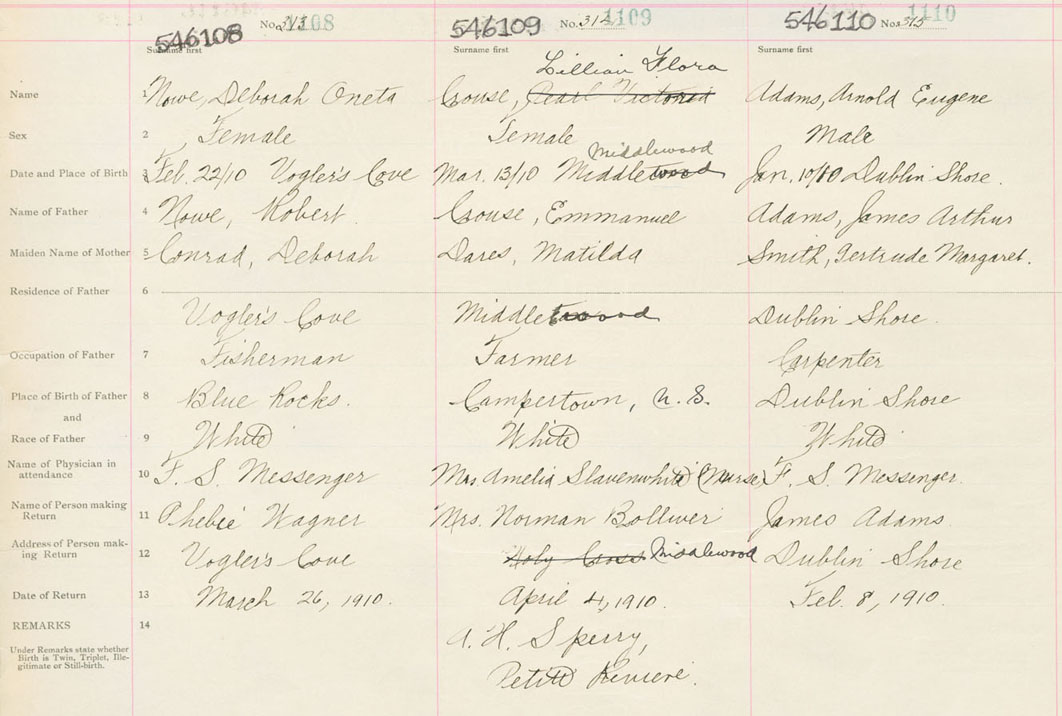 546108 No. 313 1108
546109 No. 314 1109
546110 No. 315 1110
Surname first Surname first Surname first
Lillian Flora
Name 1 Nowe, Deborah Oneta Crouse, Pearl Victoria Adams, Arnold Eugene
Sex 2 Female Female Male
Middlewood
Date and Place of Birth 3 Feb. 22/10 Vogler's Cove Mar. 13/10 Middlewood Jan. 10/10 Dublin Shore.
Name of Father 4 Nowe, Robert. Crouse, Emmanuel Adams, James Arthur
Maiden Name of Mother 5 Conrad, Deborah Dares, Matilda Smith, Gertrude Margaret.
Residence of Father 6
Vogler's Cove Middlewood Dublin Shore.
Occupation of Father 7 Fisherman Farmer Carpenter
Place of Birth of Father 8 Blue Rocks. Campertown, N.S. Dublin Shore
and
Race of Father 9 White White White
Name of Physician in attendance 10 F. S. Messenger Mrs Amelia Slavenwhite (Nurse) F. S. Messenger.
Name of Person making Return 11 Phebie Wagner Mrs. Norman Bolliver James Adams.
Address of Person mak-
ing Return 12 Vogler's Cove Holy Cross Middlewood Dublin Shore
Date of Return 13 March 26, 1910. April 4, 1910. Feb. 8, 1910.
REMARKS 14 A. H. Sperry,
Under Remarks state whether
Birth is Twin, Triplet, Ille-
gitimate or Still-birth.
Petite Riviere.